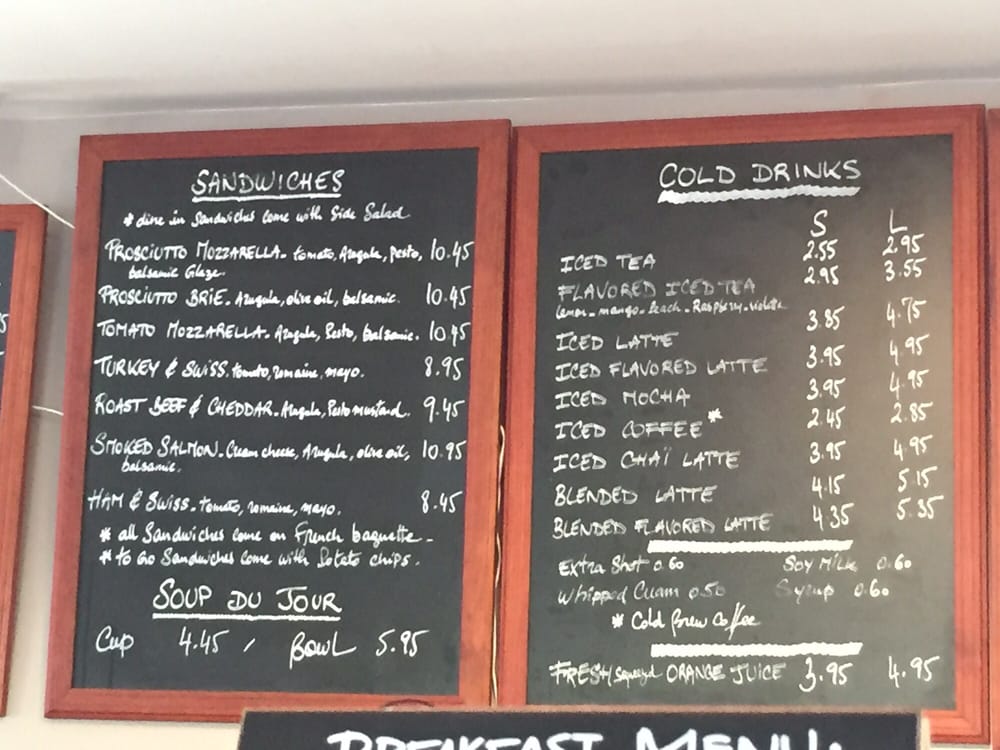 SANDWICHES
* dine in Sandwiches come with Side Salad
PROSCIUTTO MOZZARELLA - tomato, Arugula, Pesto, 10.45
balsamic Glaze.
PROSCIUTTO BRIE - Arugula, olive oil, balsamic. 10.45
TOMATO MOZZARELLA - Arugula, Pesto, balsamic. 10.45
TURKEY & SWISS. tomato, romaine, mayo. 8.95
ROAST BEEF & CHEDDAR - Arugula, Pesto mustard. 9.45
SMOKED SALMON - Cream cheese, Arugula, olive oil, 10.95
balsamic.
HAM & SWISS - tomato, romaine, mayo. 8.45
* all Sandwiches come on French baguette -
* to Go Sandwiches come with Potato chips.
SOUP DU JOUR
Cup 4.45 / BOWL 5.95
COLD DRINKS
S L
ICED TEA 2.55 2.95
FLAVORED ICED TEA 2.95 3.55
lemon - mango - Peach - Raspberry - violette
ICED LATTE 3.85 4.75
ICED FLAVORED LATTE 3.95 4.95
ICED MOCHA 3.95 4.95
ICED COFFEE * 2.45 2.85
ICED CHAÏ LATTE 3.95 4.95
BLENDED LATTE 4.15 5.15
BLENDED FLAVORED LATTE 4.35 5.35
Extra Shot 0.60 Soy Milk 0.60
Whipped Cream 0.50 Syrup 0.60
* Cold Brew Coffee
FRESH Squeezed ORANGE JUICE 3.95 4.95
BREAKFAST MENU: